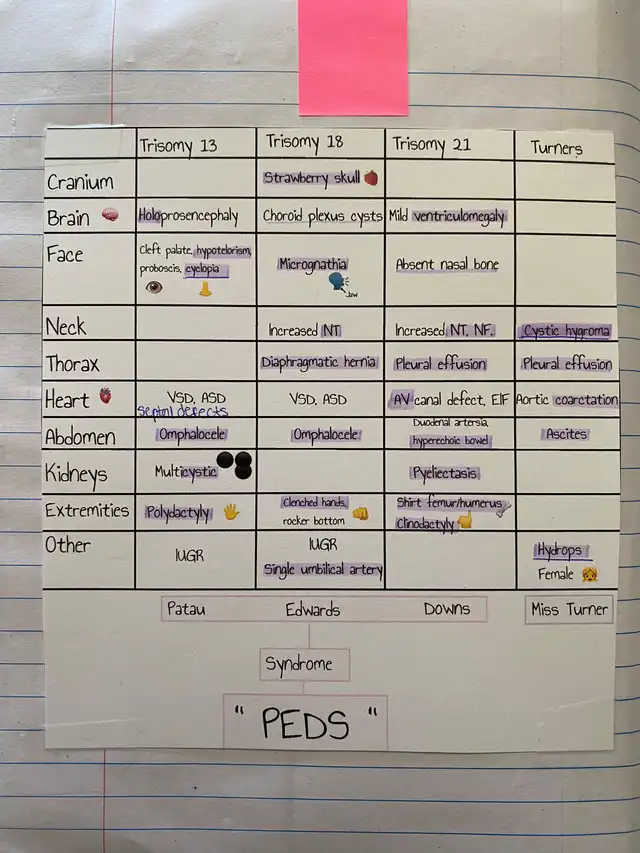 Trisomy 13 Trisomy 18 Trisomy 21 Turners
Cranium Strawberry skull
Brain Holoprosencephaly Choroid plexus cysts Mild ventriculomegaly
Face Cleft palate, hypotelorism, proboscis, cyclopia Micrognathia Jaw Absent nasal bone
Neck Increased NT Increased NT, NF, Cystic hygroma
Thorax Diaphragmatic hernia Pleural effusion Pleural effusion
Heart VSD, ASD septal defects VSD, ASD AV canal defect, EIF Aortic coarctation
Abdomen Omphalocele Omphalocele Duodenal artersia, hyperechoic bowel Ascites
Kidneys Multicystic Pyeliectasis
Extremities Polydactyly Clenched hands, rocker bottom Shirt femur/humerus Clinodactyly
Other IUGR IUGR Single umbilical artery Hydrops Female
Patau Edwards Downs Miss Turner
Syndrome
" PEDS "